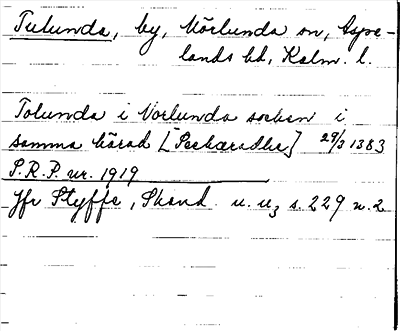 Tulunda, by, Mörlunda sn, Aspe-
lands hd, Kalm. l.
Tolunda i Vorlunda socken i
samma härad [Pesbæradhe] 29/3 1383
S.R.P. nr. 1919
Jfr Styffe, Skand. u. u3 s. 229 n. 2